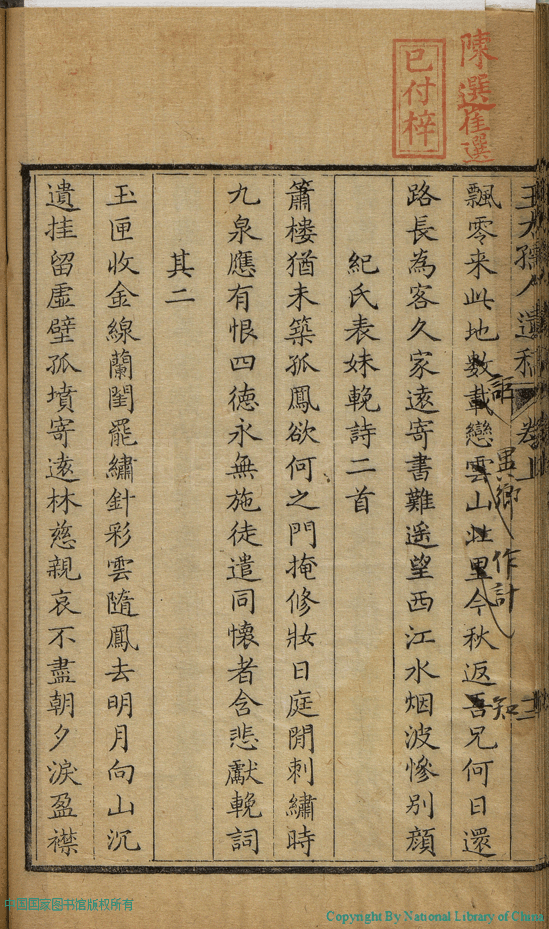 陳選崔選
已付梓
孺人遺稿 卷上
異鄉 作計 知
飄零来此地數載戀雲山里今秋返吾兄何日還
路長為客久家遠寄書難遥望西江水烟波慘別顔
紀氏表妹輓詩二首
簫樓猶未築孤鳳欲何之門掩修妝日庭閒刺繡時
九泉應有恨四徳永無施徒遣同懷者含悲獻輓詞
其二
玉匣收金線蘭閨罷繡針彩雲隨鳳去明月向山沉
遺挂留虛壁孤墳寄遠林慈親哀不盡朝夕淚盈襟
中国国家图书馆版权所有
Copyright By National Library of China